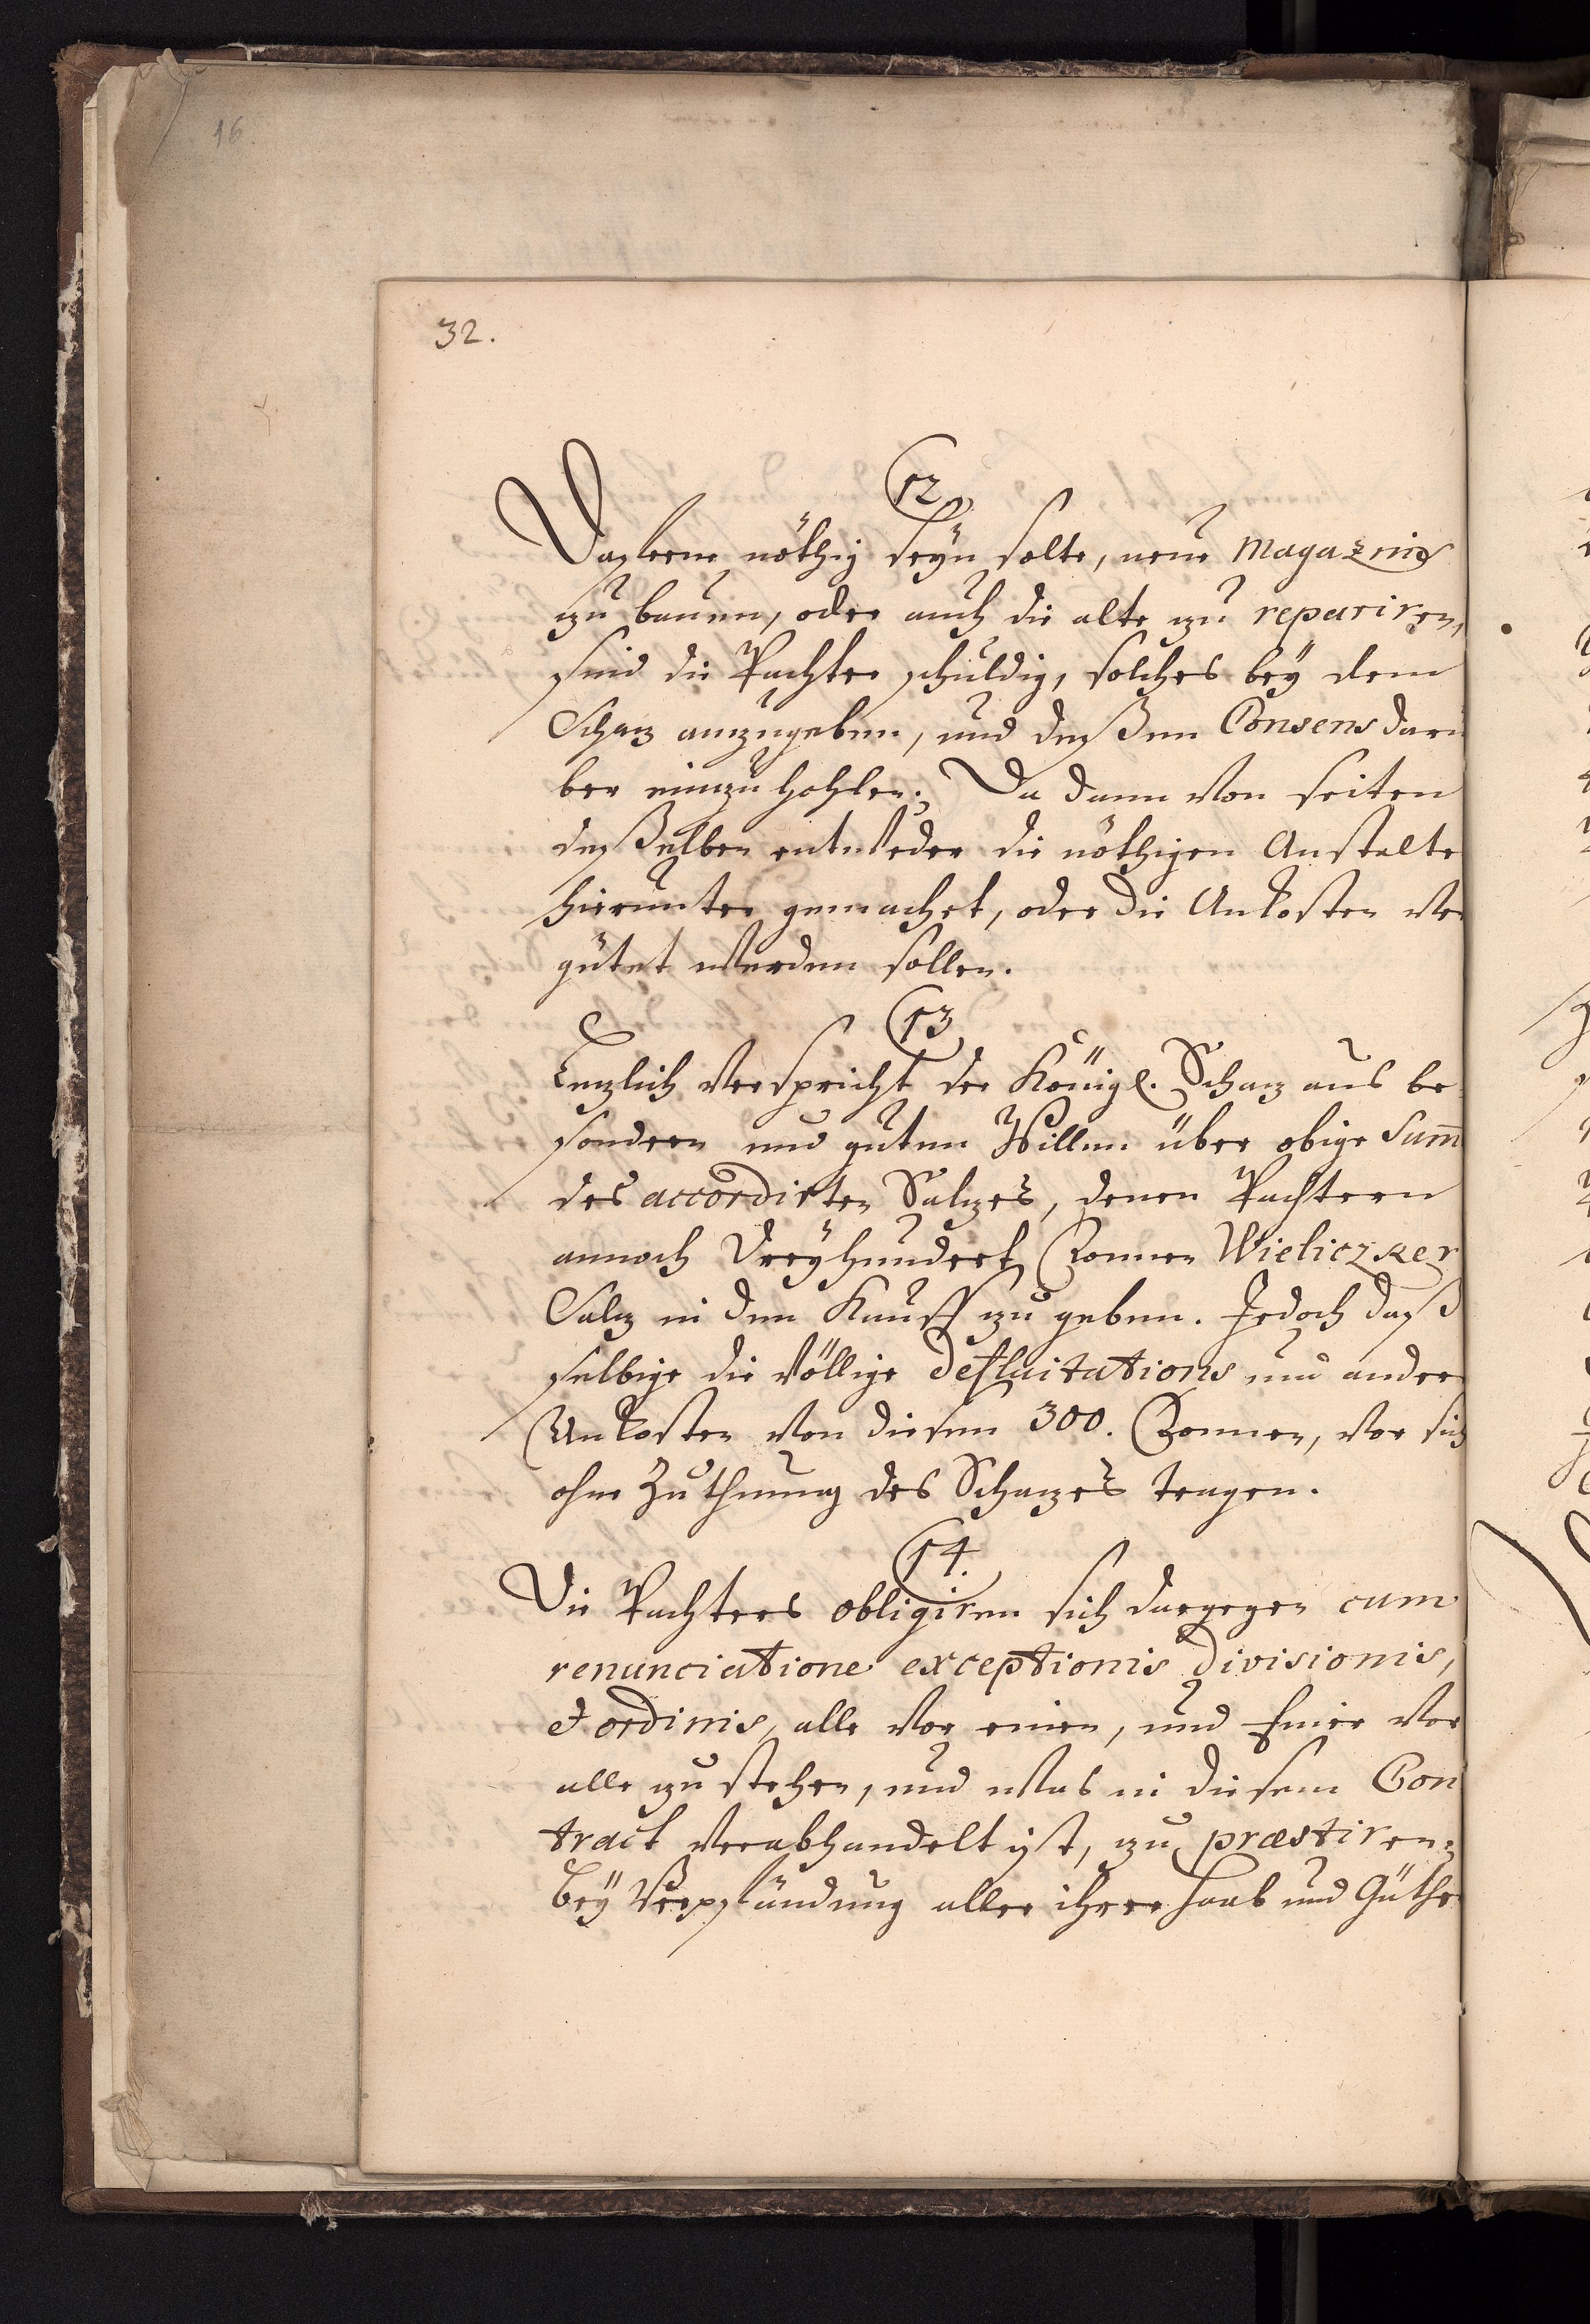 16
32.
12
Dafern nöthig seÿn solte, neue Magazine
zu bauen, oder auch die alte zu repariren,
sind die Pachter schuldig, solches beÿ dem
Schaz anzugeben, und deßen Consens darü
ber einzuhohlen. Da dann von seiten
deßelben entweder die nöthigen Anstalte
hierunter gemachet, oder die Unkosten ver
gütet werden sollen.
13
Lezlich verspricht der Königl. Schaz aus be
sondern und guten Willen über obige Sum̄
des accordirten Salzes, denen Pachtern
annoch dreÿhundert Tonnen Wieliczker
Salz in den Kauff zu geben. Jedoch daß
selbige die völlige defluitations und ander
Unkosten von diesen 300. Tonnen, vor sich
ohne Zuthuung des Schazes tragen.
14.
Die Pachters obligiren sich dargegen cum
renunciatione exceptionis divisionis,
et ordinis, alle vor einen, und Einer vor
alle zu stehen, und was in diesem Con
tract verabhandelt ist, zu præstiren,
beÿ Verpfändung aller ihrer Haab und Güthe